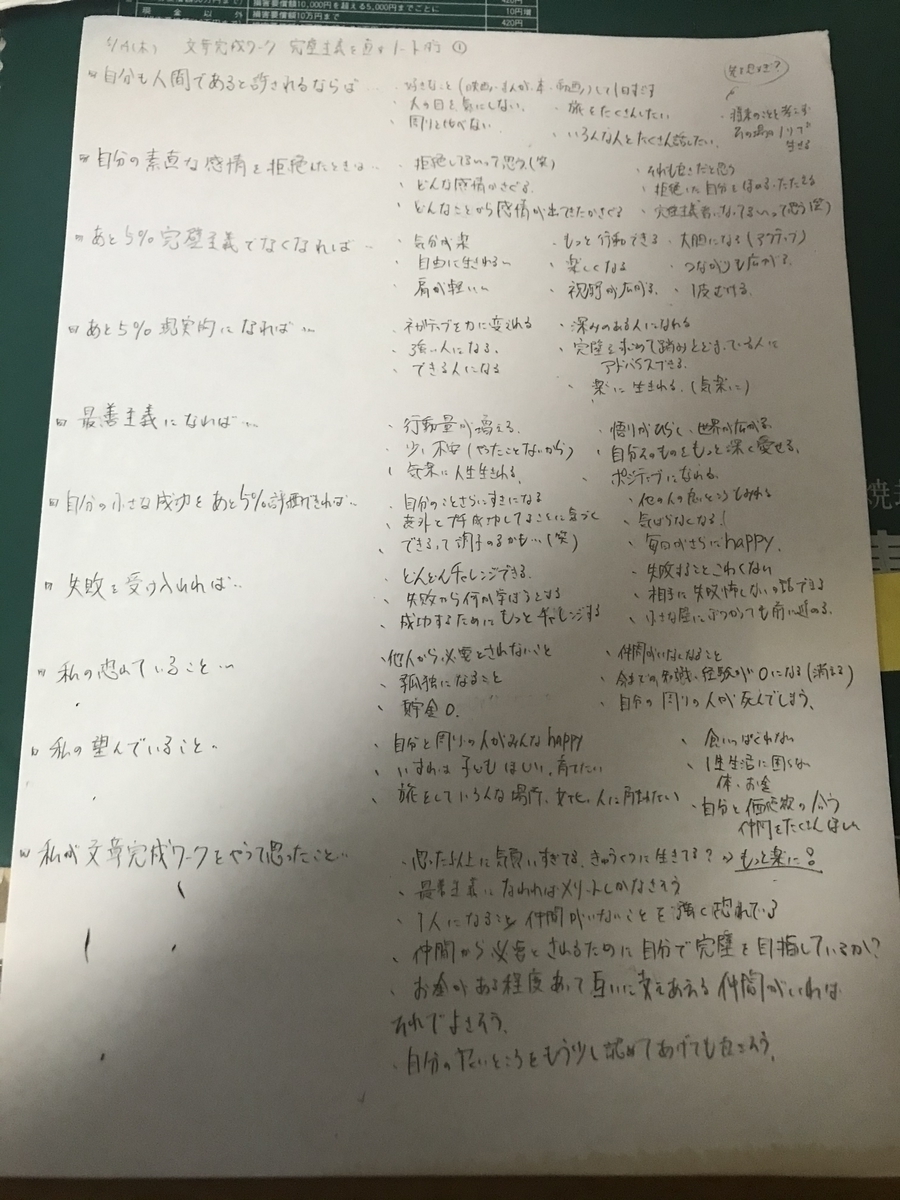 損害要償額10,000円を超える5,000円までごとに
10円増
現金以外
損害要償額10万円まで
420円
文章完成ワーク 完璧主義を直すノート術 ①
自分も人間であると許されるならば…
・好きなこと(映画・まんが・本・動画)して1日すごす
・人の目を気にしない。
・旅をたくさんしたい。
・周りと比べない
・いろんな人とたくさん話したい。
・将来のことを考えず
その場のノリで
生きる
自分の素直な感情を拒絶したときは…
・拒絶してるいって思う(笑)
・それも良きだと思う
・どんな感情かさぐる。
・拒絶した自分をほめる・たたえる
・どんなことから感情が出てきたかさぐる
・完璧主義者になってるいって思う(笑)
あと5%完璧主義でなくなれば…
・気分が楽
・もっと行動できる
・大胆になる(アクティブ)
・自由に生きれる〜
・楽しくなる
・つながりも広がる。
・肩が軽い〜
・視野が広がる。
・1皮むける。
あと5%現実的になれば…
・ネガティブを力に変えれる
・深みのある人になれる
・強い人になる。
・完璧を求めて踏みとどまっている人に
アドバイスできる。
・できる人になる
・楽に生きれる。(気楽に)
最善主義になれば…
・行動量が増える。
・悟りがひらく、世界が広がる。
・少し不安(やったことないから)
・自分そのものをもっと深く愛せる。
・気楽に人生生きれる。
・ポジティブになれる。
自分の小さな成功をあと5%評価できれば…
・自分のことさらにすきになる
・他の人の良いところもみれる
・意外とプチ成功してることに気づく
・気ばらなくなる!
・できるって調子のるかも…(笑)
・毎日がさらにhappy.
失敗を受け入れれば…
・どんどんチャレンジできる。
・失敗することこわくない
・失敗から何か学ぼうとする
・相手に失敗怖しない話できる
・成功するためにもっとチャレンジする
・小さな壁にぶつかっても前に進める。
私の恐れていること…
・他人から必要とされないこと
・仲間がいなくなること
・孤独になること
・今までの知識、経験が0になる(消える)
・貯金0.
・自分の周りの人が死んでしまう。
私の望んでいること…
・自分と周りの人がみんなhappy
・食いっぱぐれない
・いずれは子どもほしい、育てたい
・1生生活に困らない
体・お金
・旅をしていろんな場所、文化、人に関わりたい
・自分と価値観の合う
仲間をたくさんほしい
私が文章完成ワークをやって思ったこと…
・思った以上に気負いすぎてる、きゅうくつに生きてる?⇒もっと楽に!
・最善主義になれればメリットしかなさそう
・1人になること、仲間がいないことを強く恐れている
・仲間から必要とされるために自分で完璧を目指しているかも?
・お金がある程度あって互いに支えあえる仲間がいれば
それでよさそう。
・自分の良いところをもう少し認めてあげても良さそう。